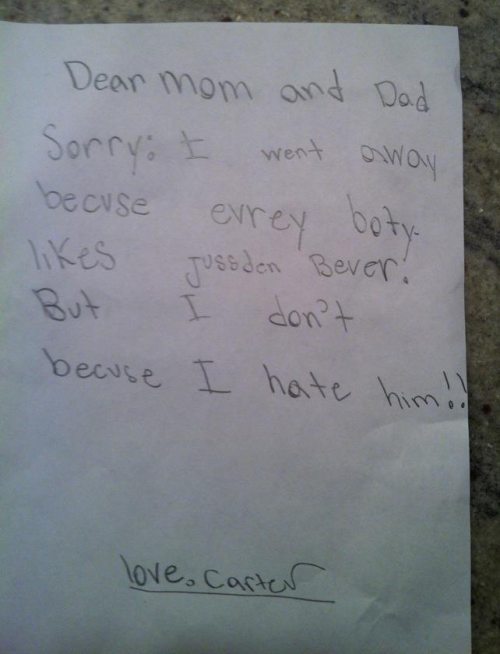 Dear mom and Dad
Sorry: I went away
becuse evrey boty.
likes jussden Bever!
But I don't
becuse I hate him!!
love. Carter